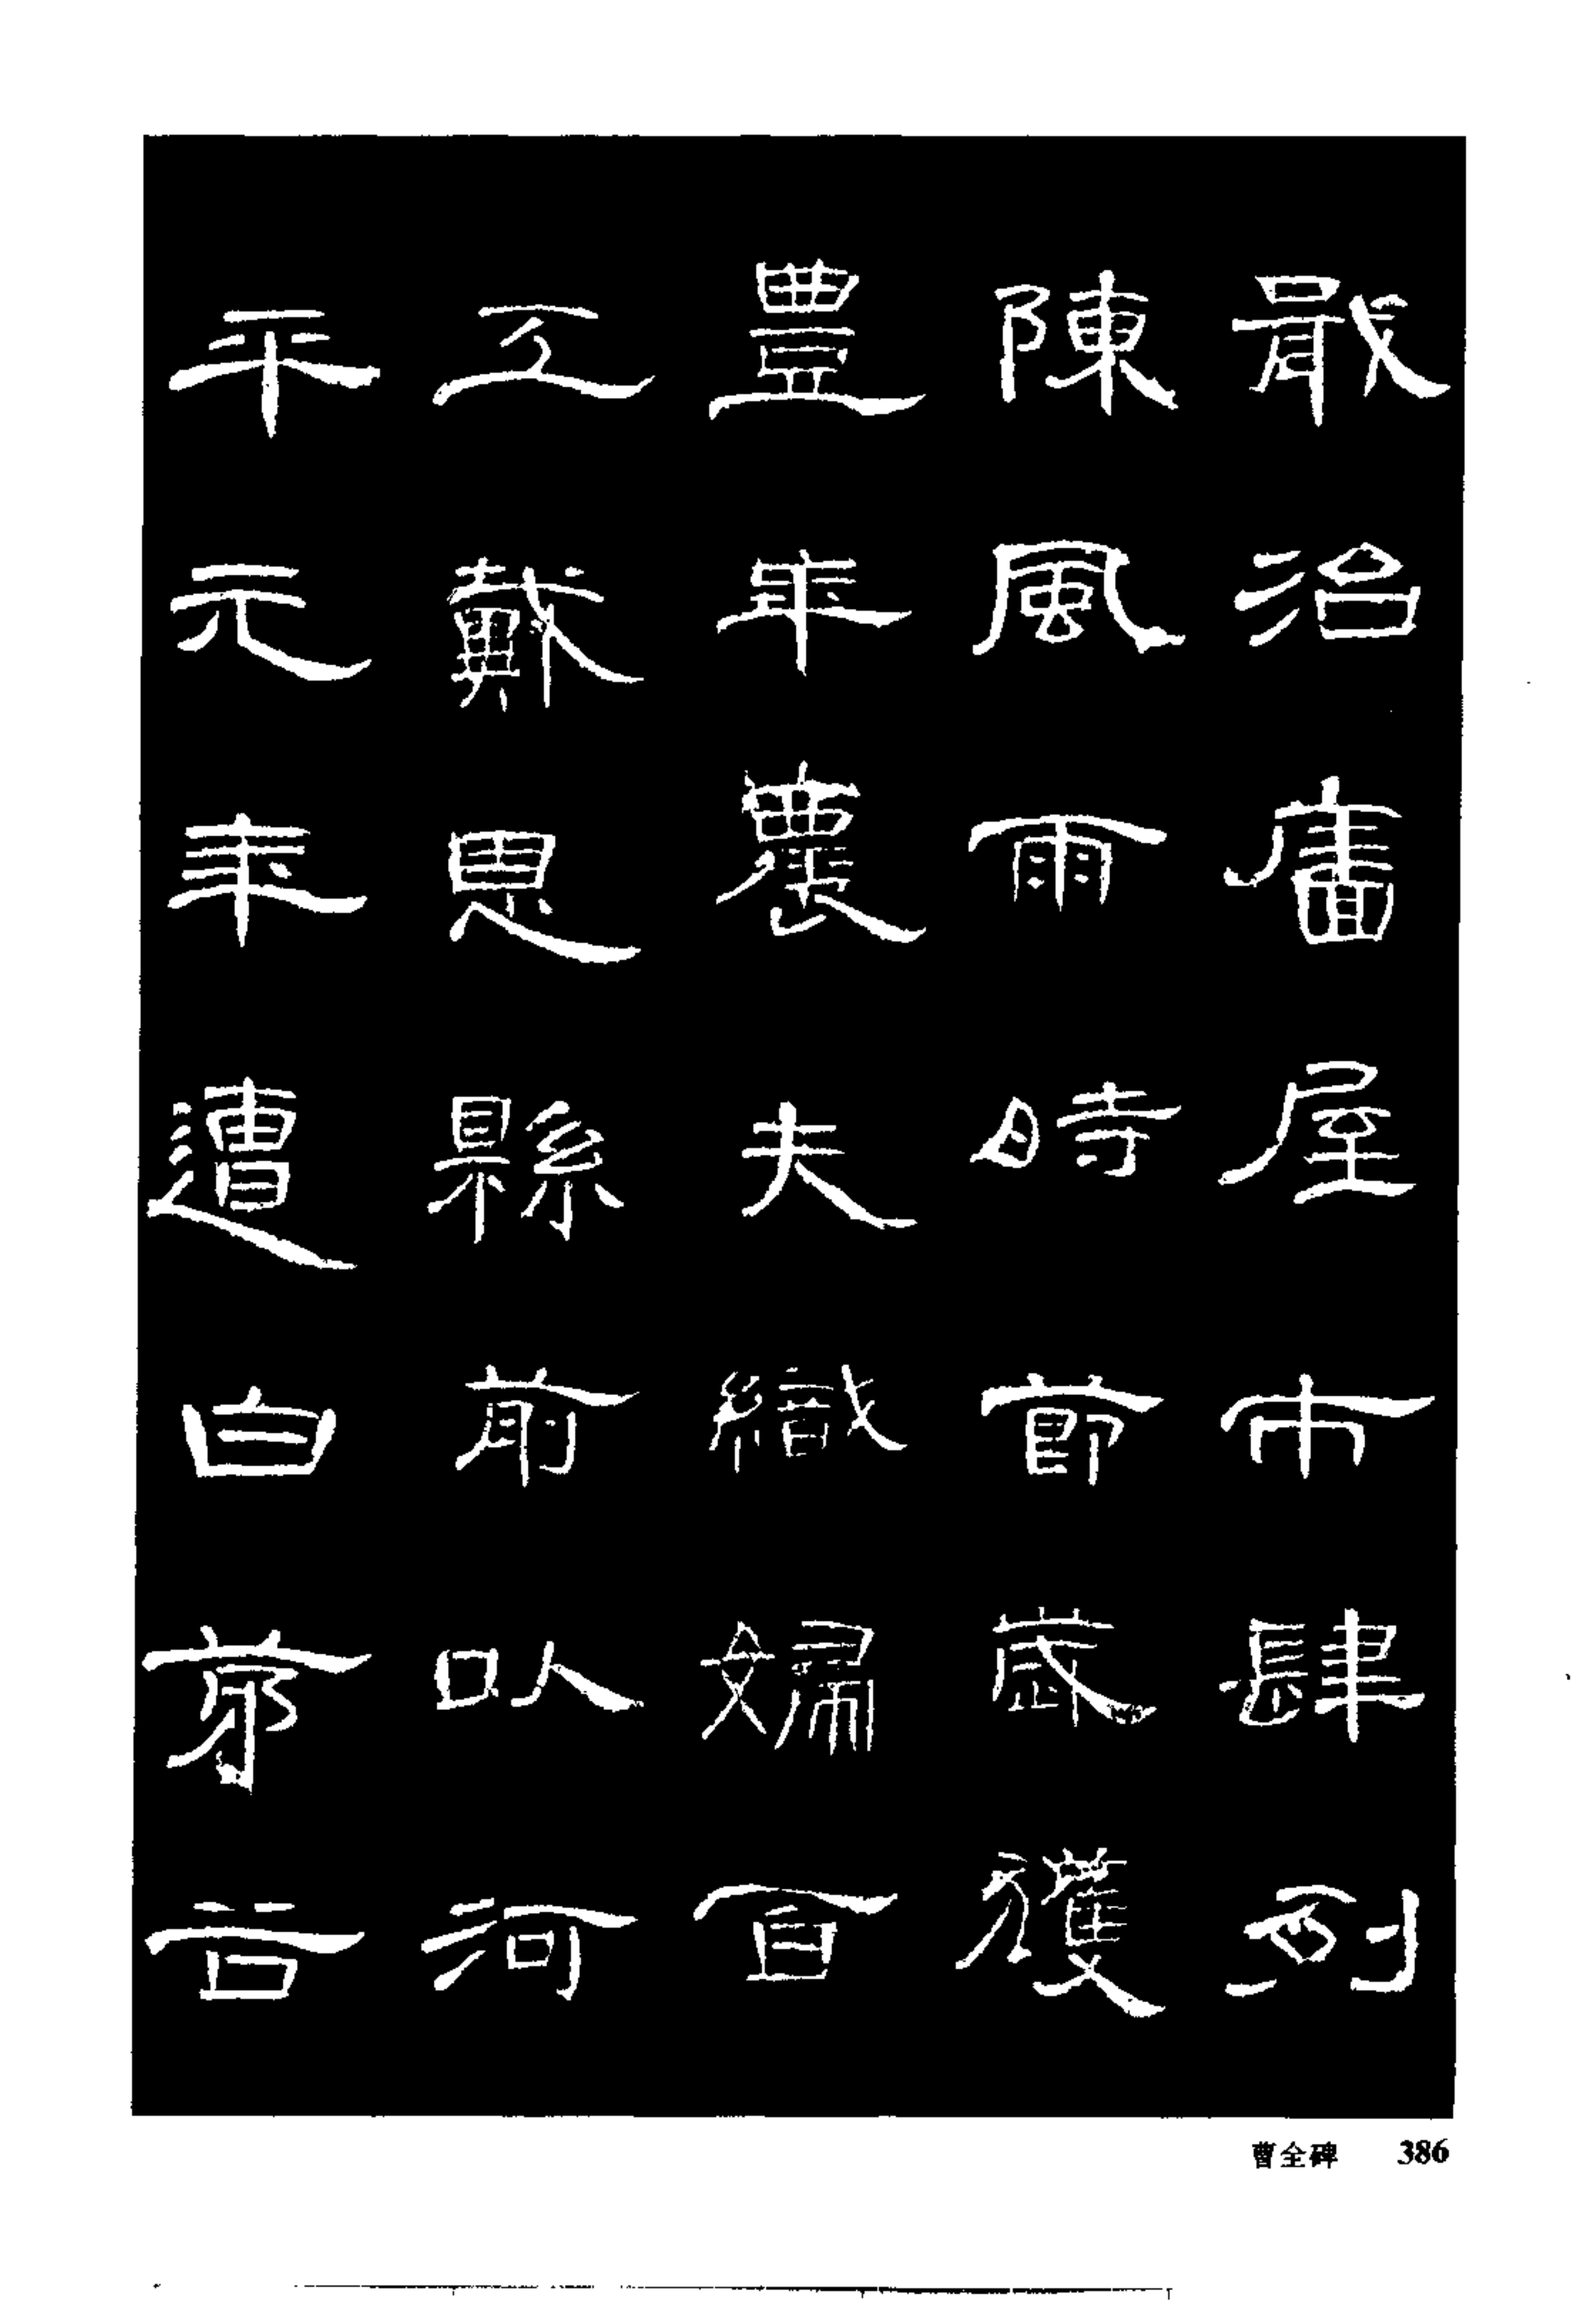 戢治廧屋市肆列
陳風雨時節歲獲
豐年農夫織婦百
工戴恩縣前以河
平元年遭白茅谷
曹全碑 386